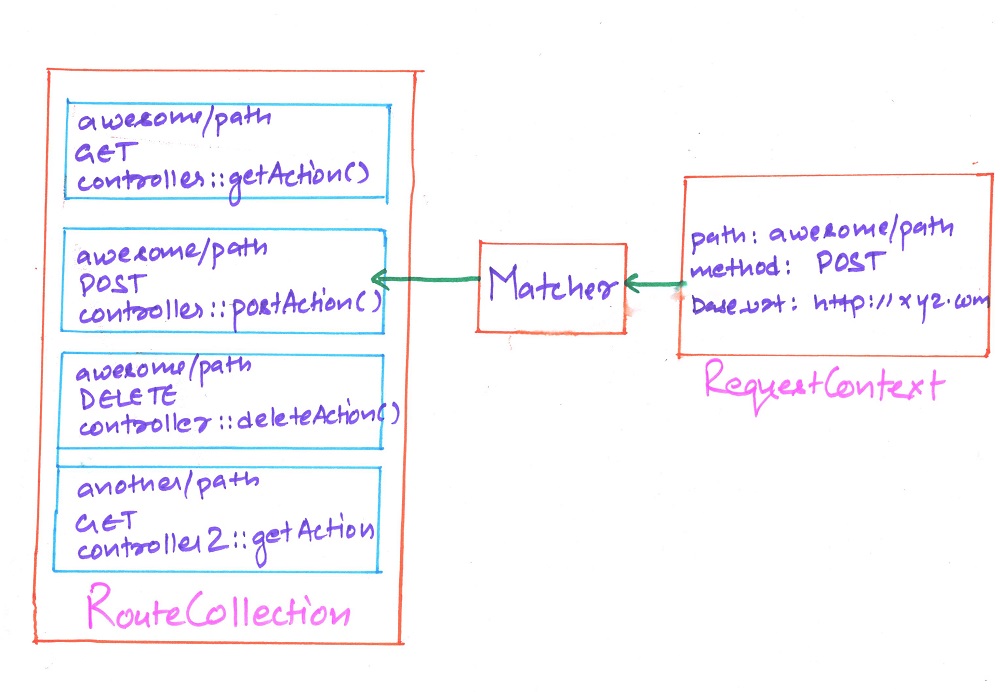 awesome/path
GET
controller::getAction()
awesome/path
POST
controller::postAction()
awesome/path
DELETE
controller::deleteAction()
another/path
GET
controller2::getAction
RouteCollection
Matcher
path: awesome/path
method: POST
base_url: http://xyz.com
RequestContext